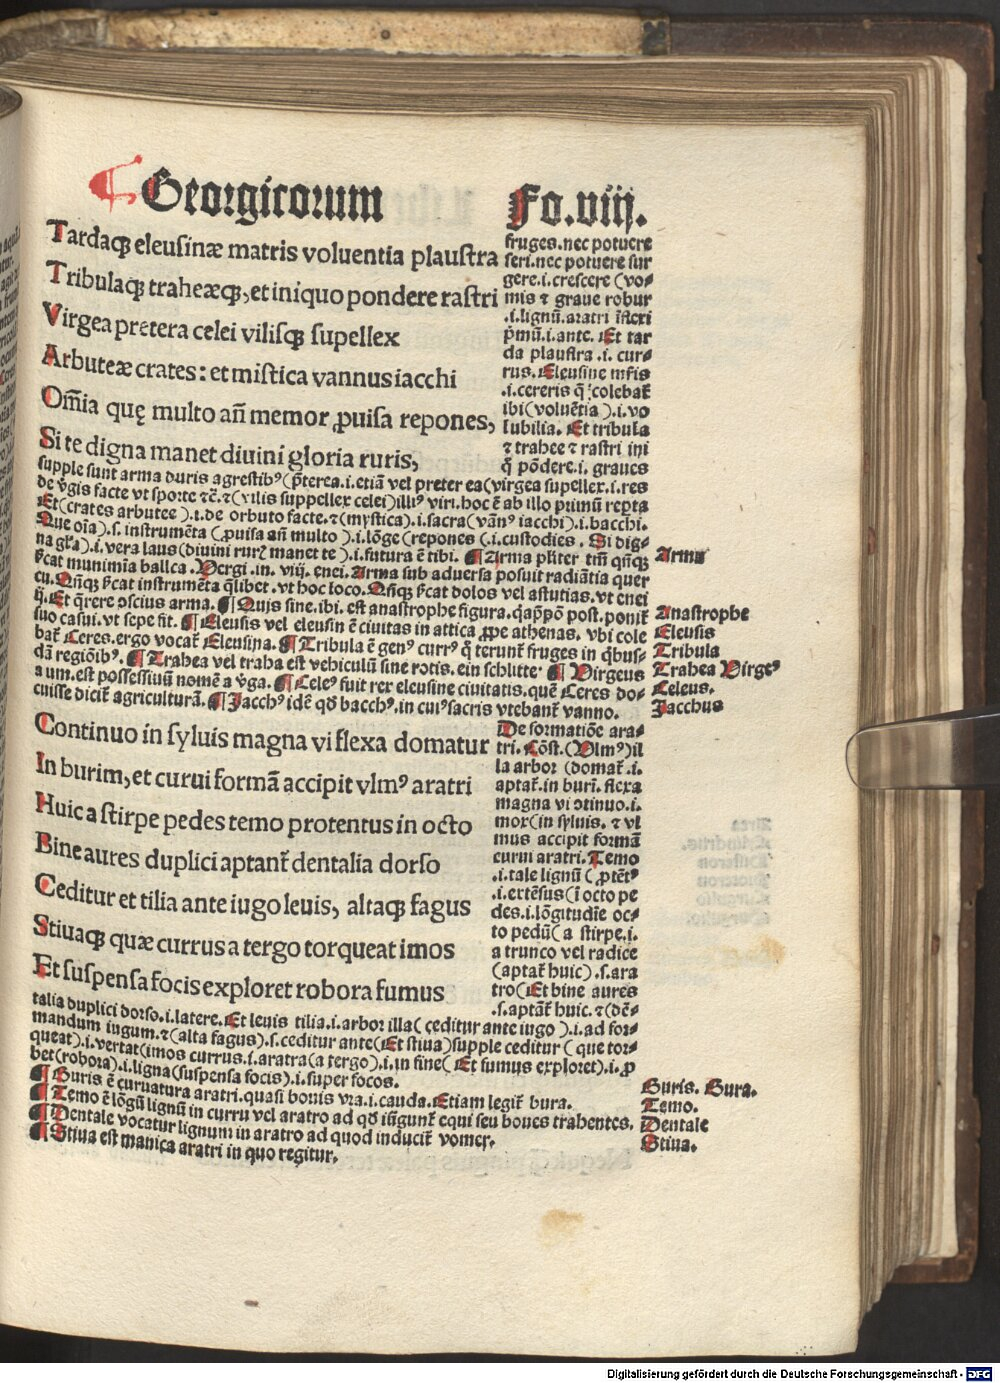 Georgicorum Fo.viij.
Tardaq̃ eleusinæ matris voluentia plaustra
Tribulaq̃ traheæq̃, et iniquo pondere rastri
Virgea pretera celei vilisq̃ supellex
Arbuteæ crates: et mistica vannus iacchi
Om̃ia quę multo añ memor ꝓuisa repones,
Si te digna manet diuini gloria ruris,
fruges. nec potuere
seri. nec potuere sur
gere .i. crescere (vo⸗
mis ⁊ graue robur
.i. lignũ. aratri iñexi
p̃mũ .i. ante. Et tar
da plaustra .i. cur⸗
rus. Eleusine mr̃is
.i. cereris q̃ colebat̃
ibi (voluẽtia) .i. vo
lubilia. Et tribula
⁊ trahee ⁊ rastri ini
q̃ põdere .i. graues
supple sunt arma duris agrestibꝰ (p̃terea .i. etiã vel preter ea (virgea supellex .i. res
de ṽgis facte vt sporte ⁊c̃. ⁊ (vilis suppellex celei) illiꝰ viri. hoc ẽ ab illo primũ rep̃ta
Et (crates arbutee) .i. de orbuto facte. ⁊ (mystica) .i. sacra (vãnꝰ iacchi) .i. bacchi.
Que oĩa) .s. instrumẽta (ꝓuisa añ multo) .i. lõge (repones (.i. custodies. Si dig⸗
na gl̃a) .i. vera laus (diuini rurꝭ manet te) .i. futura ẽ tibi. ¶ Arma pl̃iter tm̃ qñq̃
Arma
ẽcat munimia ballca. Vergi. in. viij. enei. Arma sub aduersa posuit radiãtia quer
cu. Qñq̃ ẽcat instrumẽta q̃libet. vt hoc loco. Qñq̃ ẽcat dolos vel astutias. vt enei
ij. Et q̃rere ꝯscius arma. ¶ Quis sine. ibi. est anastrophe figura. q̃ap̃põ post. ponit̃
Anastrophe
suo casui. vt sepe fit. ¶ Eleusis vel eleusin ẽ ciuitas in attica ꝓpe athenas. vbi cole
Eleusis
bat̃ Ceres. ergo vocat̃ Eleusina. ¶ Tribula ẽ genꝰ currꝰ q̃ terunt̃ fruges in q̃bus⸗
Tribula
dã regiõibꝰ. ¶ Trahea vel traha est vehiculũ sine rotis. ein schlitte. ¶ Virgeus
Trahea Virgeꝰ
a um. est possessiuũ nomẽ a ṽga. ¶ Celeꝰ fuit rex eleusine ciuitatis. quẽ Ceres do⸗
Celeus.
cuisse dicit̃ agriculturã. ¶ Jacchꝰ idẽ qd̃ bacchꝰ. in cuiꝰ sacris vtebant̃ vanno.
Jacchus
Continuo in syluis magna vi flexa domatur
In burim, et curui formã accipit vlmꝰ aratri
Huic a stirpe pedes temo protentus in octo
Bine aures duplici aptant̃ dentalia dorso
Ceditur et tilia ante iugo leuis, altaq̃ fagus
Stiuaq̃ quæ currus a tergo torqueat imos
Et suspensa focis exploret robora fumus
De formatiõe ara⸗
tri. Cõst. (Vlmꝰ) il
la arbor (domat̃ .i.
aptat̃. in buri. flexa
magna vi ꝯtinuo .i.
mox (in syluis. ⁊ vl
mus accipit formã
curui aratri. Temo
.i. tale lignũ (ꝓtẽtꝰ
.i. extẽsus (ĩ octo pe
des .i. lõgitudĩe oc⸗
to pedũ (a stirpe .i.
a trunco vel radice
(aptat̃ huic) .s. ara
tro (Et bine aures
.s. aptãt̃ huic. ⁊ (dẽ⸗
talia duplici dorso .i. latere. Et leuis tilia .i. arbor illa (ceditur ante iugo) .i. ad for⸗
mandum iugum. ⁊ (alta fagus) .s. ceditur ante (Et stiua) supple ceditur (que tor⸗
queat) .i. vertat (imos currus .i. aratra (a tergo) .i. in fine (Et fumus exploret) .i. ꝓ
bet (robora) .i. ligna (suspensa focis) .i. super focos.
¶ Buris ẽ curuatura aratri. quasi bouis vra .i. cauda. Etiam legit̃ bura.
Buris. Bura.
¶ Temo ẽ lõgũ lignũ in curru vel aratro ad qd̃ iũgunt̃ equi seu boues trahentes.
Temo.
¶ Dentale vocatur lignum in aratro ad quod inducit̃ vomer.
Dentale
¶ Stiua est manica aratri in quo regitur.
Stiua.
Digitalisierung gefördert durch die Deutsche Forschungsgemeinschaft - DFG